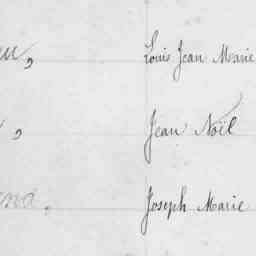 Louis Jean Marie
Jean Noël
Joseph Marie